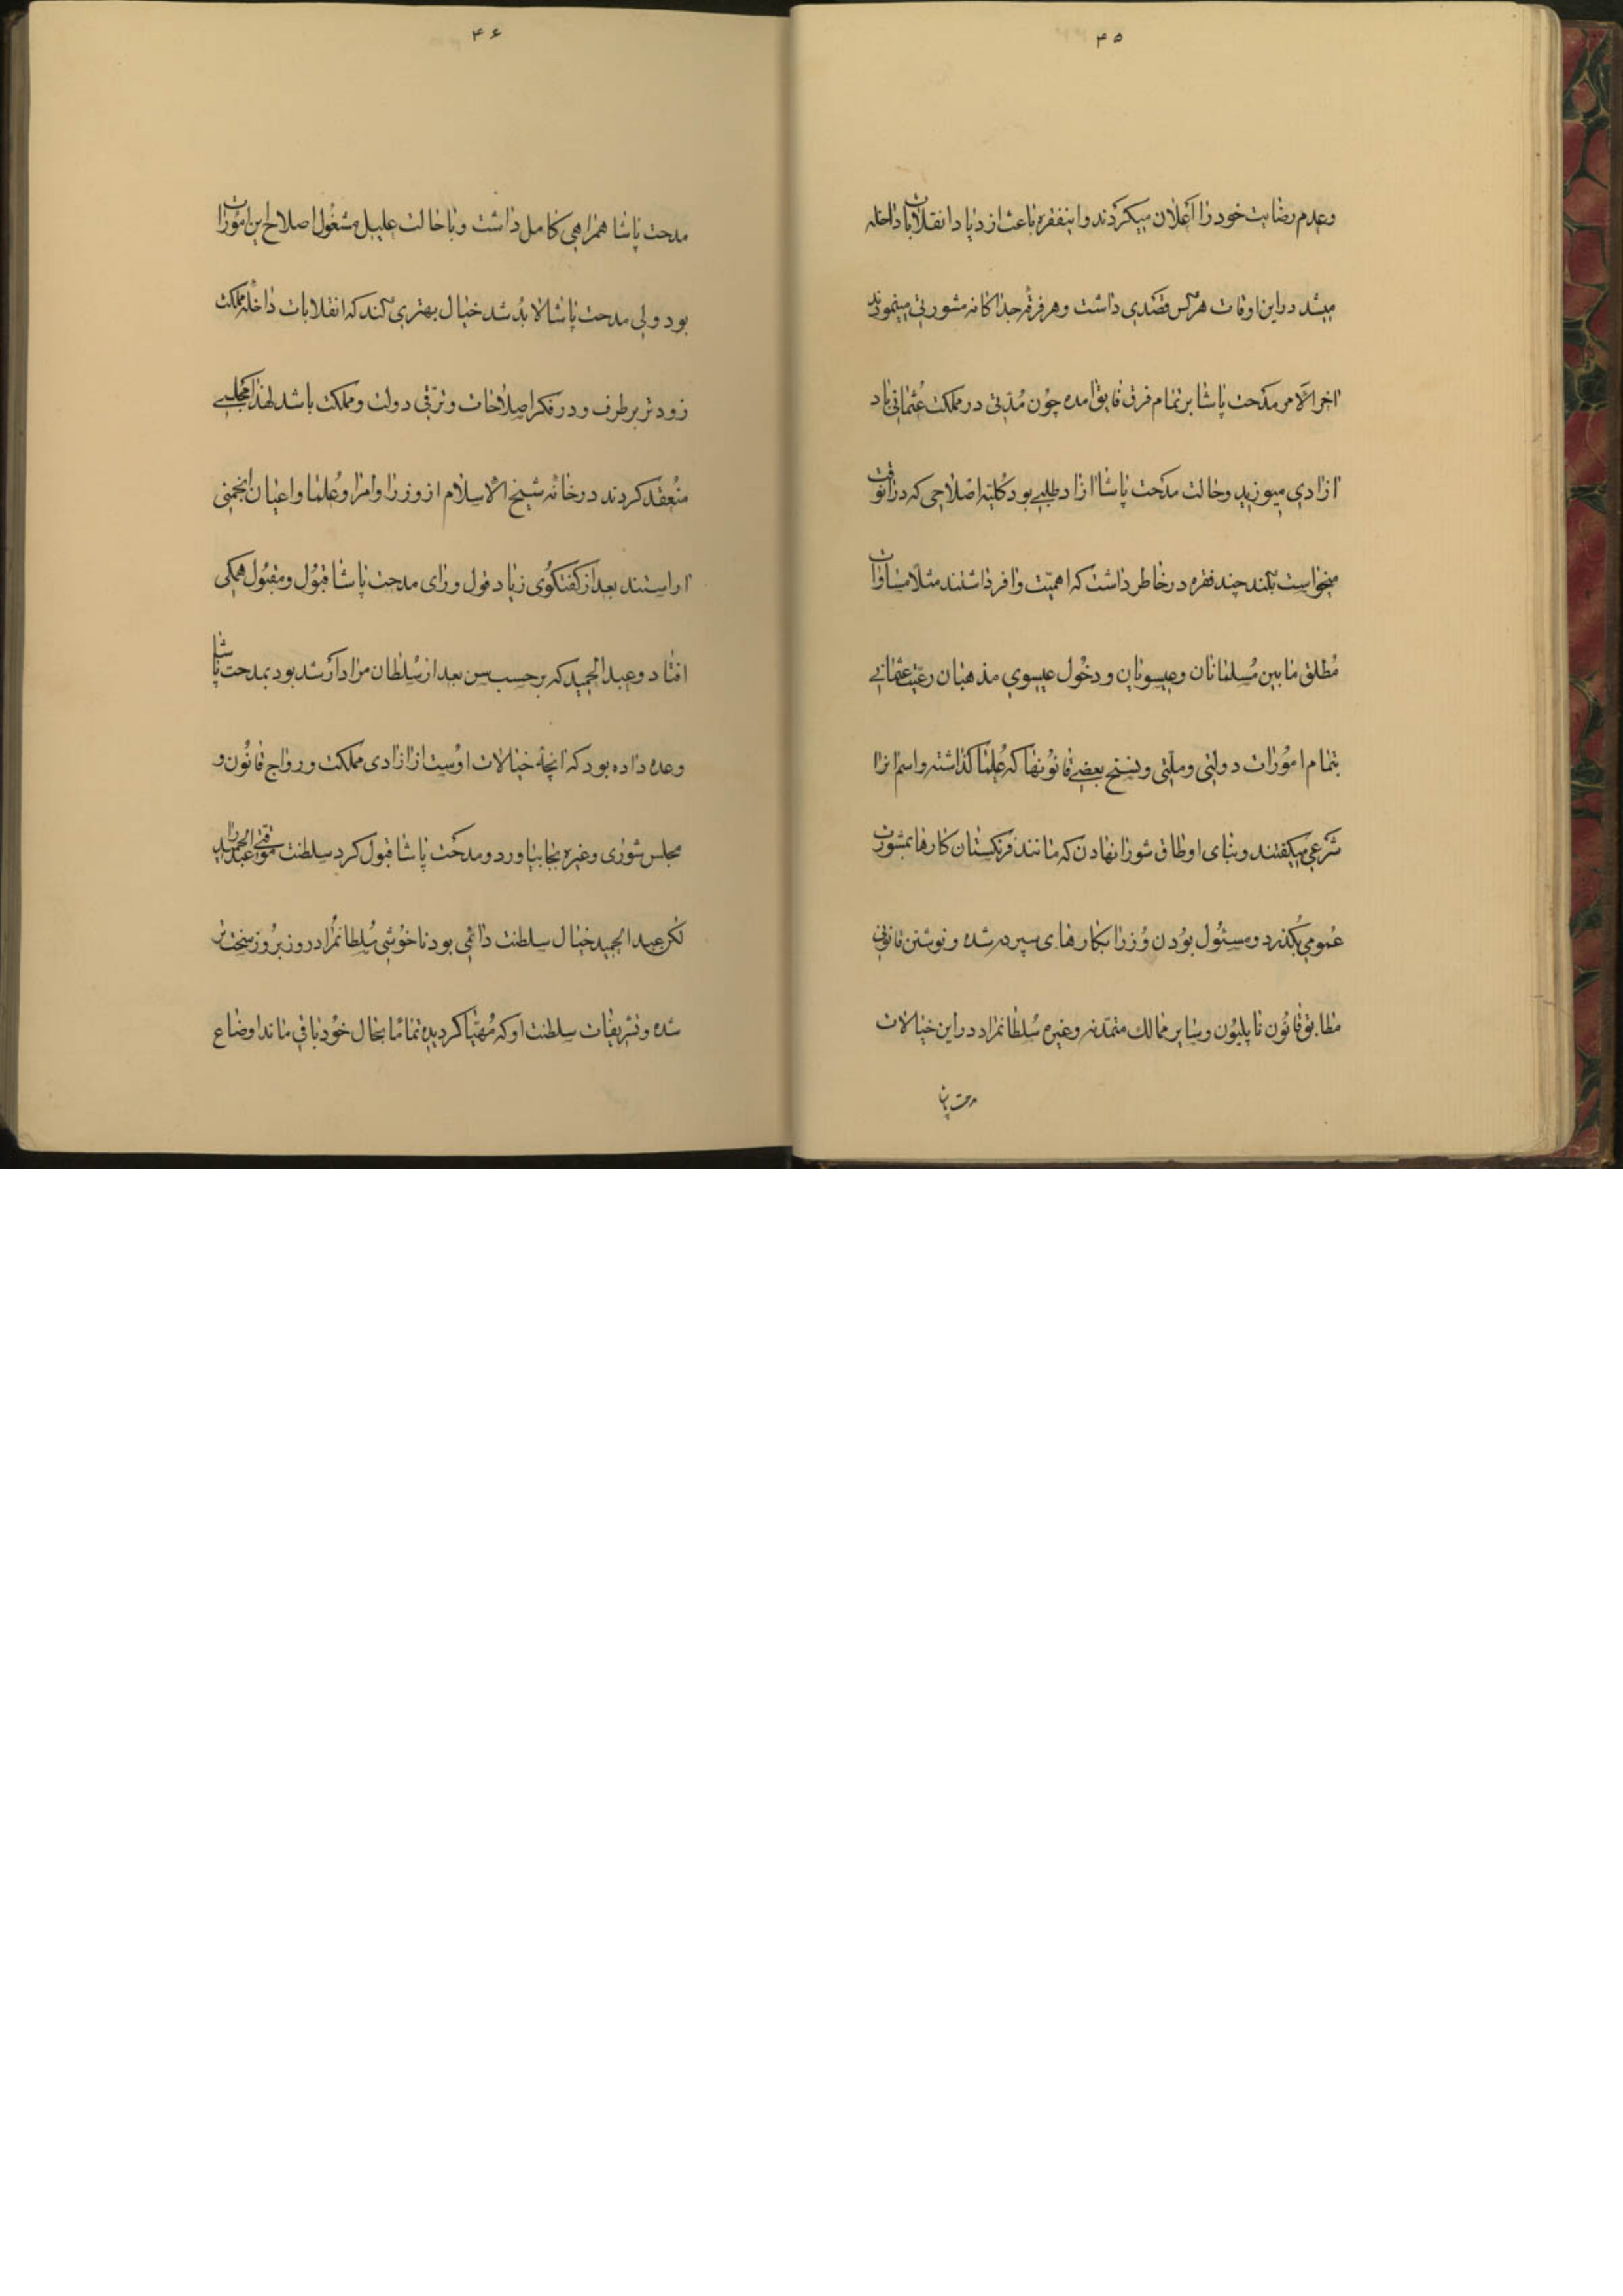 ۴۵
وعدم رضایت خود را اعلان میکردند و اینفقره باعث ازدیاد انقلابات داخله
میشد در این اوقات هر کس قصدی داشت و هر فرقه جداکانه مشورتی مینمودند
اخر الامر مدحت پاشا بر تمام فرق فایق امده چون مدتی در مملکت عثمانی باد
ازادی میوزید و حالت مدحت پاشا ازاد طلبی بود کلیه اصلاحی که در انوقت
میخواست بکند چند فقره در خاطر داشت که اهمیت وافر داشتند مثلا مساوات
مطلق مابین مسلمانان و عیسویان و دخول عیسوی مذهبان رعیت عثمانی
بتمام امورات دولتی و ملتی و نسخ بعضی قانونها که علما کذاشته و اسم انرا
شرعی میکفتند و بنای اوطاق شورا نهادن که مانند فرنکستان کارها بمشورت
عمومی بکذرد و مسئول بودن وزرا بکارهای سپرده شده و نوشتن قانونی
مطابق قانون ناپلیون و سایر ممالک متمدنه و غیره سلطانمراد در این خیالات
مدحت پاشا
۴۶
مدحت پاشا همراهی کامل داشت و با حالت علیل مشغول اصلاح این امورات
بود ولی مدحت پاشا لابد شد خیال بهتری کند که انقلابات داخله مملکت
زودتر برطرف و در فکر اصلاحات و ترقی دولت و مملکت باشد لهذا مجلسی
منعقد کردند در خانه شیخ الاسلام از وزرا و امرا و علما و اعیان انجمنی
اراستند بعد از کفتکوی زیاد قول و رای مدحت پاشا قبول و مقبول همکی
افتاد و عبد الحمید که بر حسب سن بعد از سلطان مراد ارشد بود بمدحت پاشا
وعده داده بود که انچه خیالات اوست از ازادی مملکت و رواج قانون و
مجلس شورای و غیره بجا بیاورد و مدحت پاشا قبول کرد سلطنت موقتی عبد الحمید را
لکن عبد الحمید خیال سلطنت دائمی بود ناخوشی سلطانمراد روز بروز سخت تر
شده و تشریفات سلطنت او که مهیا کردیده تماما بحال خود باقی ماند اوضاع